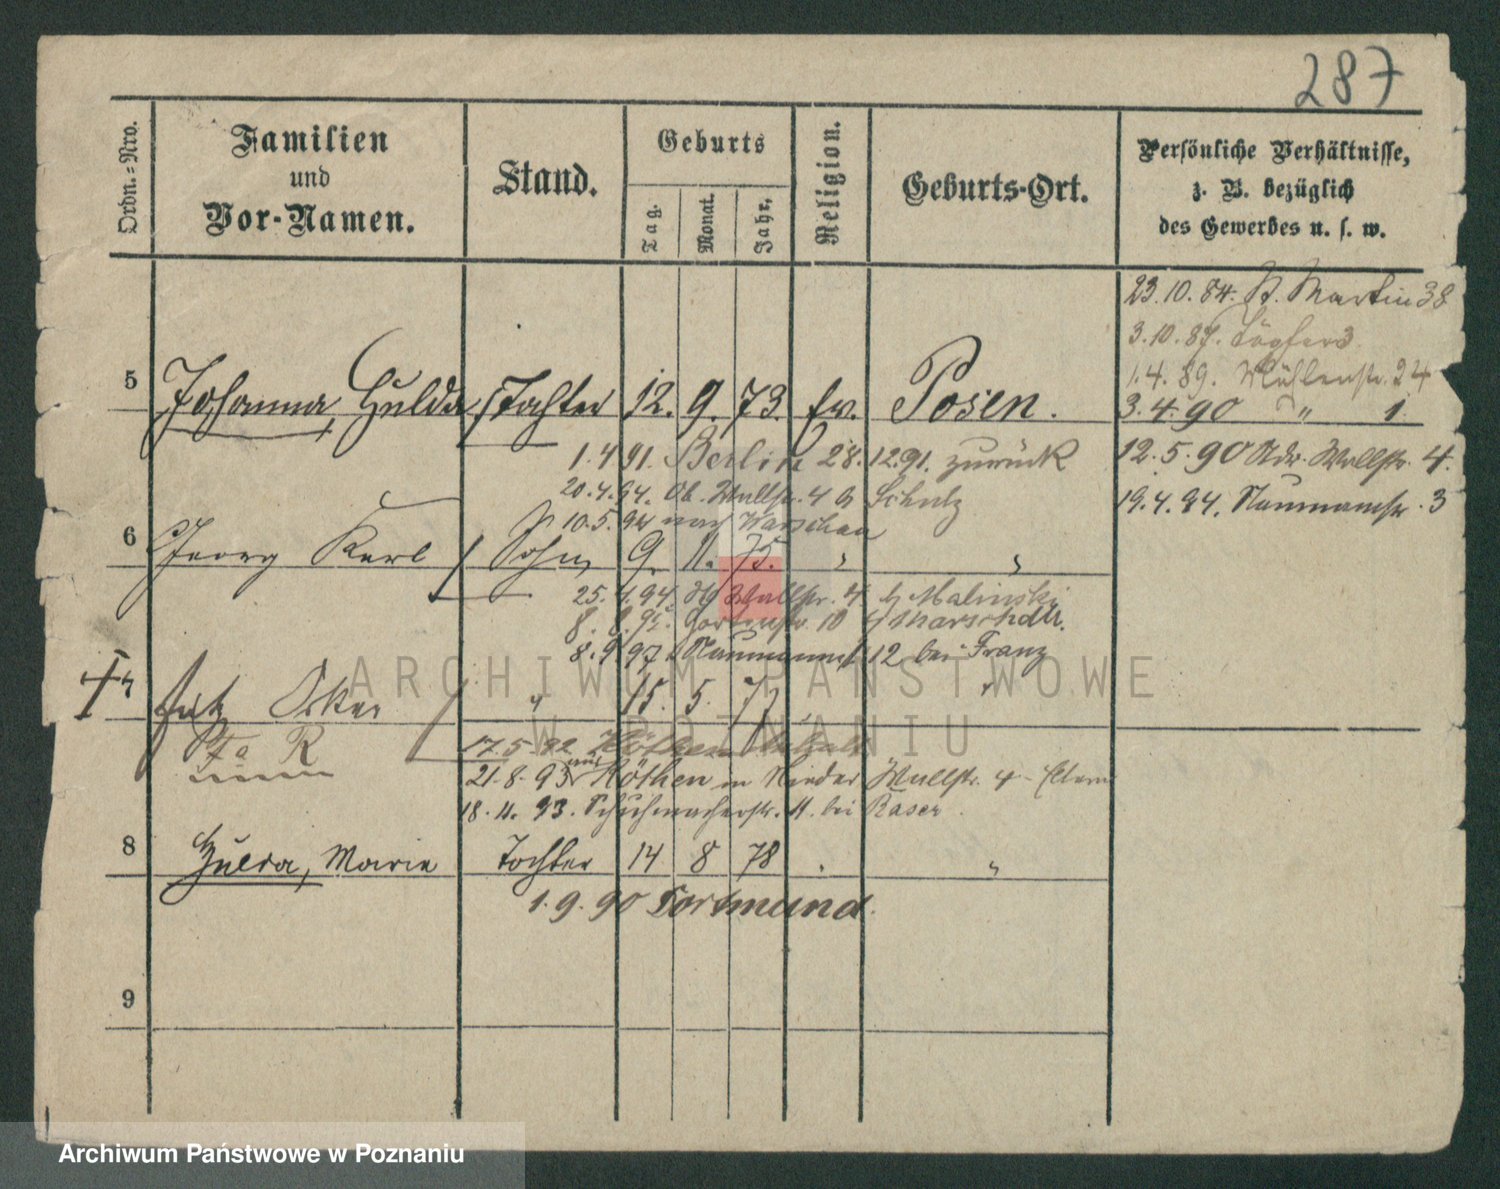 287
Ordn.-Nro.
Familien
und
Vor-Namen.
Stand.
Geburts
Tag.
Monat.
Jahr.
Religion.
Geburts-Ort.
Persönliche Verhältnisse,
z. B. bezüglich
des Gewerbes u. s. w.
23.10.84. St. Martin 38
3.10.87. Töpfer 3
1.4.89. Mühlenstr. 24
5 Johanna, Hulda Tochter 12. 9. 73. ev. Posen.
3.4.90 " 1.
1.4.91. Berlin 28.12.91. zurück
12.5.90 Wallstr. 4.
20.4.94. Ob. Wallstr. 4 b Schulz
19.4.94. Naumannstr. 3
10.5.94 nach Warschau
6 Georg Karl Sohn 9. 11. 75. " "
25.4.94 Wallstr. 4 b Malinski
8.8.95. Gartenstr. 10
8.9.97. Naumannstr. 12 bei Franz
7 Fritz Oskar " 15. 5. 77 "
17.5.92 Köthen Anhalt
21.8.93 aus Köthen in Wallstr. 4 Eltern
18.11.93. Schuhmacherstr. 11. bei Raser
8 Hulda, Marie Tochter 14 8 78 " "
1.9.90 Dortmund.
9
ARCHIWUM PAŃSTWOWE
W POZNANIU
Archiwum Państwowe w Poznaniu